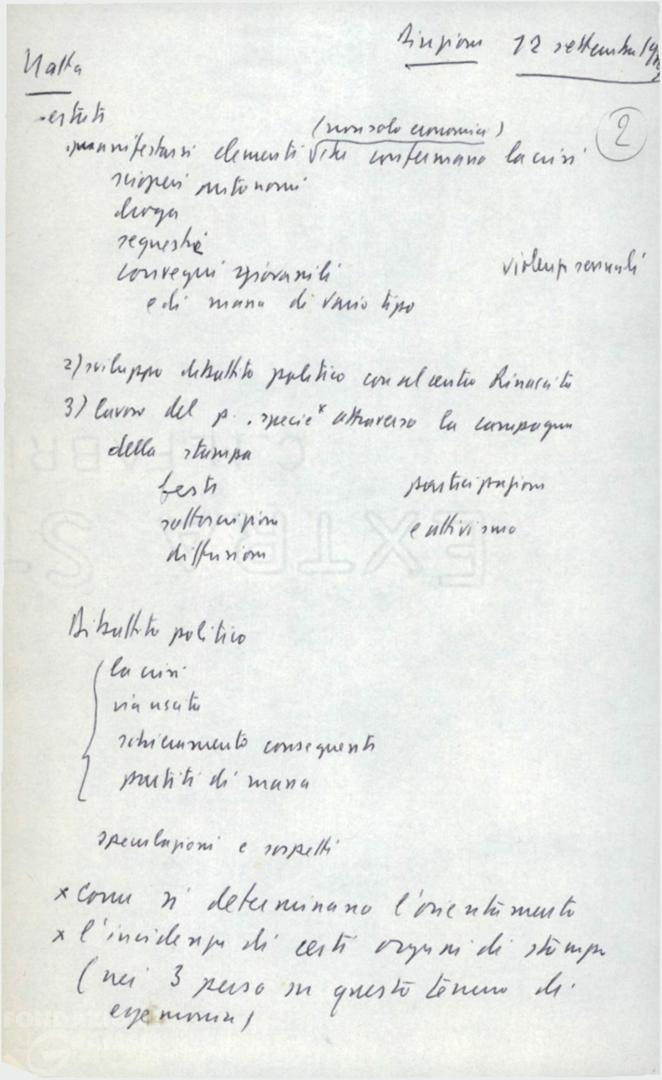 Natta
Direzione 12 settembre
2
- estate
(non solo economia)
manifestarsi elementi che confermano la crisi
scioperi autonomi
droga
sequestri
convegni giovanili
violenze sessuali
e di massa di vario tipo
2) sviluppo dibattito politico con al centro Rinascita
3) lavoro del p. specie x attraverso la campagna
della stampa
feste
partecipazione
sottoscrizione
e attivismo
diffusione
C.M. FABRI
EXTRA ST
Dibattito politico
la crisi
via uscita
schieramento conseguente
partiti di massa
speculazioni e sospetti
x come si determinano l'orientamento
x l'incidenza di certi organi di stampa
(noi 3 perso su questo terreno di
egemonia)